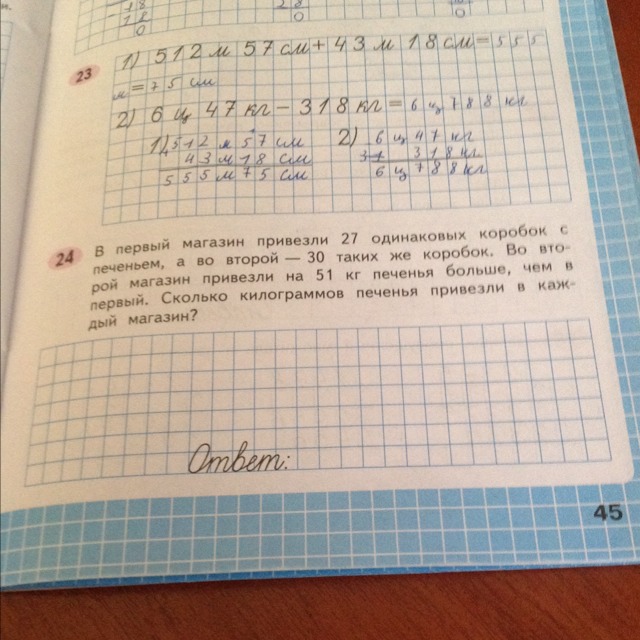 23
1) 512 м 57 см + 43 м 18 см = 555
м = 75 см
2) 6 ц 47 кг − 318 кг = 6 ц 788 кг
1) 512 м 57 см
43 м 18 см
555 м 75 см
2) 6 ц 47 кг
318 кг
6 ц 788 кг
24
В первый магазин привезли 27 одинаковых коробок с
печеньем, а во второй — 30 таких же коробок. Во вто-
рой магазин привезли на 51 кг печенья больше, чем в
первый. Сколько килограммов печенья привезли в каж-
дый магазин?
Ответ:
45